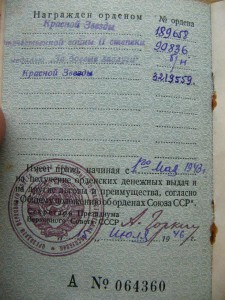 Награжден орденом
№ ордена
Красной Звезды 189658
Отечественной войны II степени 99836
медалью „За боевые заслуги" б/н
Красной Звезды 3219559.
Имеет право, начиная с 1го мая 1943 г.
на получение орденских денежных выдач и
на другие льготы и преимущества, согласно
„Общему положению об орденах Союза ССР".
Секретарь Президиума
Верховного Совета СССР А. Горкин
Июля 1946 г.
А № 064360